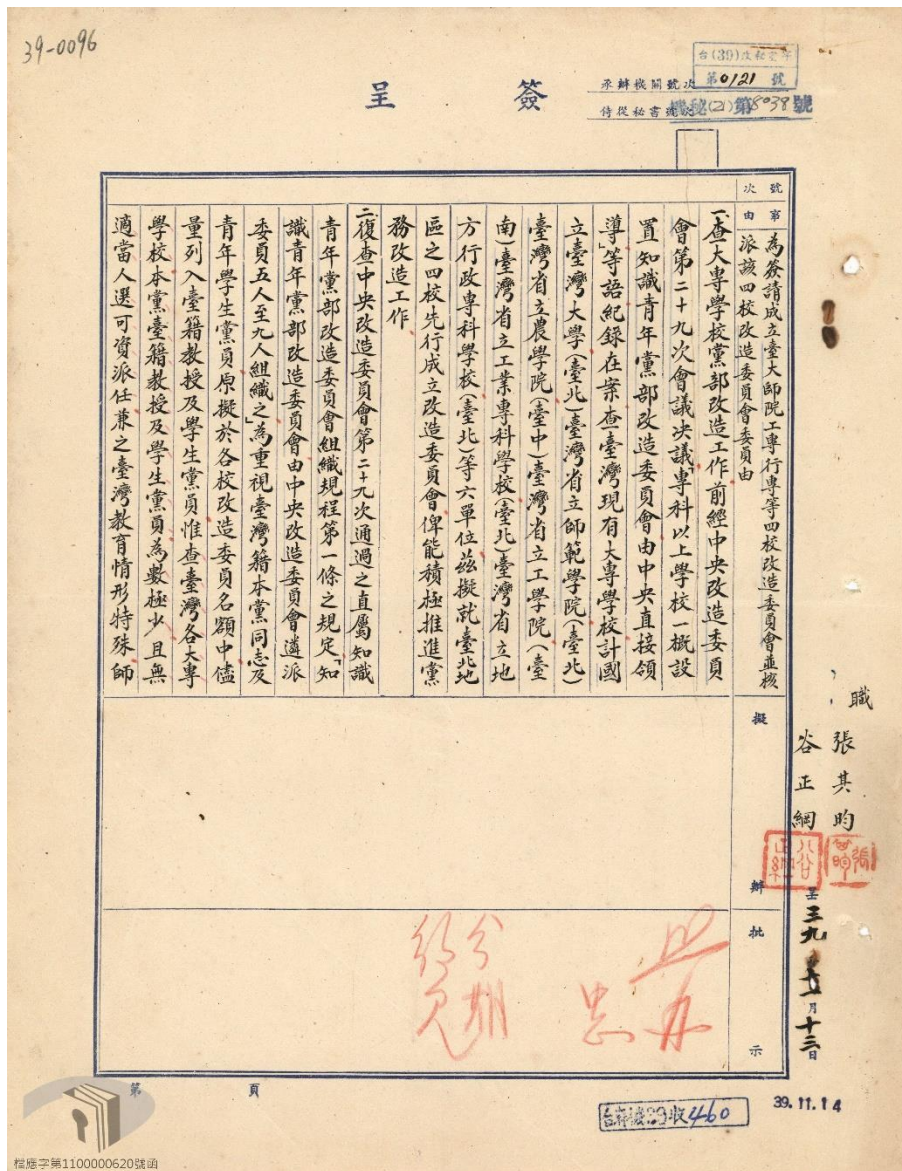 39-0096
台(39)改秘室字
第0121號
簽呈
承辦機關號次
侍從秘書號次
機秘(21)第8038號
號次
事由
為簽請成立臺大師院工專行專等四校改造委員會並核
派該四校改造委員會委員由
一、查大專學校黨部改造工作前經中央改造委員
會第二十九次會議決議專科以上學校一概設
置知識青年黨部改造委員會由中央直接領
導」等語紀錄在案查臺灣現有大專學校計國
立臺灣大學(臺北)臺灣省立師範學院(臺北)
臺灣省立農學院(臺中)臺灣省立工學院(臺
南)臺灣省立工業專科學校(臺北)臺灣省立地
方行政專科學校(臺北)等六單位茲擬就臺北地
區之四校先行成立改造委員會俾能積極推進黨
務改造工作
二、復查中央改造委員會第二十九次通過之直屬知識
青年黨部改造委員會組織規程第一條之規定「知
識青年黨部改造委員會由中央改造委員會遴派
委員五人至九人組織之」為重視臺灣籍本黨同志及
青年學生黨員原擬於各校改造委員名額中儘
量列入臺籍教授及學生黨員惟查臺灣各大專
學校本黨臺籍教授及學生黨員為數極少且無
適當人選可資派任兼之臺灣教育情形特殊師
擬辦
批示
職
張其昀
谷正綱
呈
三九
月十三日
分期
約見
第 頁
收460
39.11.14
檔應字第1100000620號函